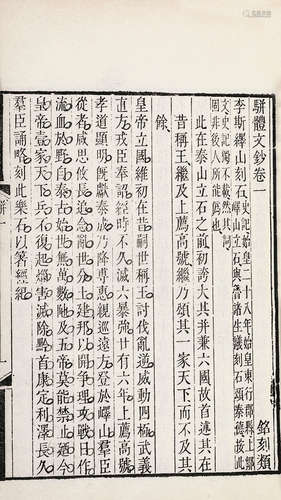 駢體文鈔卷一 銘刻類
李斯繹山刻石 史記始皇二十八年始皇東行郡縣上鄒
嶧山立石與魯諸生議刻石頌秦德故此
文史記獨不載然其詞
固非後人所能爲也
此在泰山立石之前初誇大其并兼六國故首述其在
昔稱王繼及上薦高號繼乃頌其一家天下而不及其
餘
皇帝立國維初在昔嗣世稱王討伐亂逆威動四極武義
直方戎臣奉詔經時不久滅六暴強廿有六年上薦高號
孝道顯明旣獻泰成乃降尃惠親巡遠方登於嶧山羣臣
從者咸思攸長追念亂世分土建邦以開爭理攻戰日作
流血於野自泰古始世無萬數陀及五帝莫能禁止迺今
皇帝壹家天下兵不復起烖害滅除黔首康定利澤長久
羣臣誦略刻此樂石以箸經紀